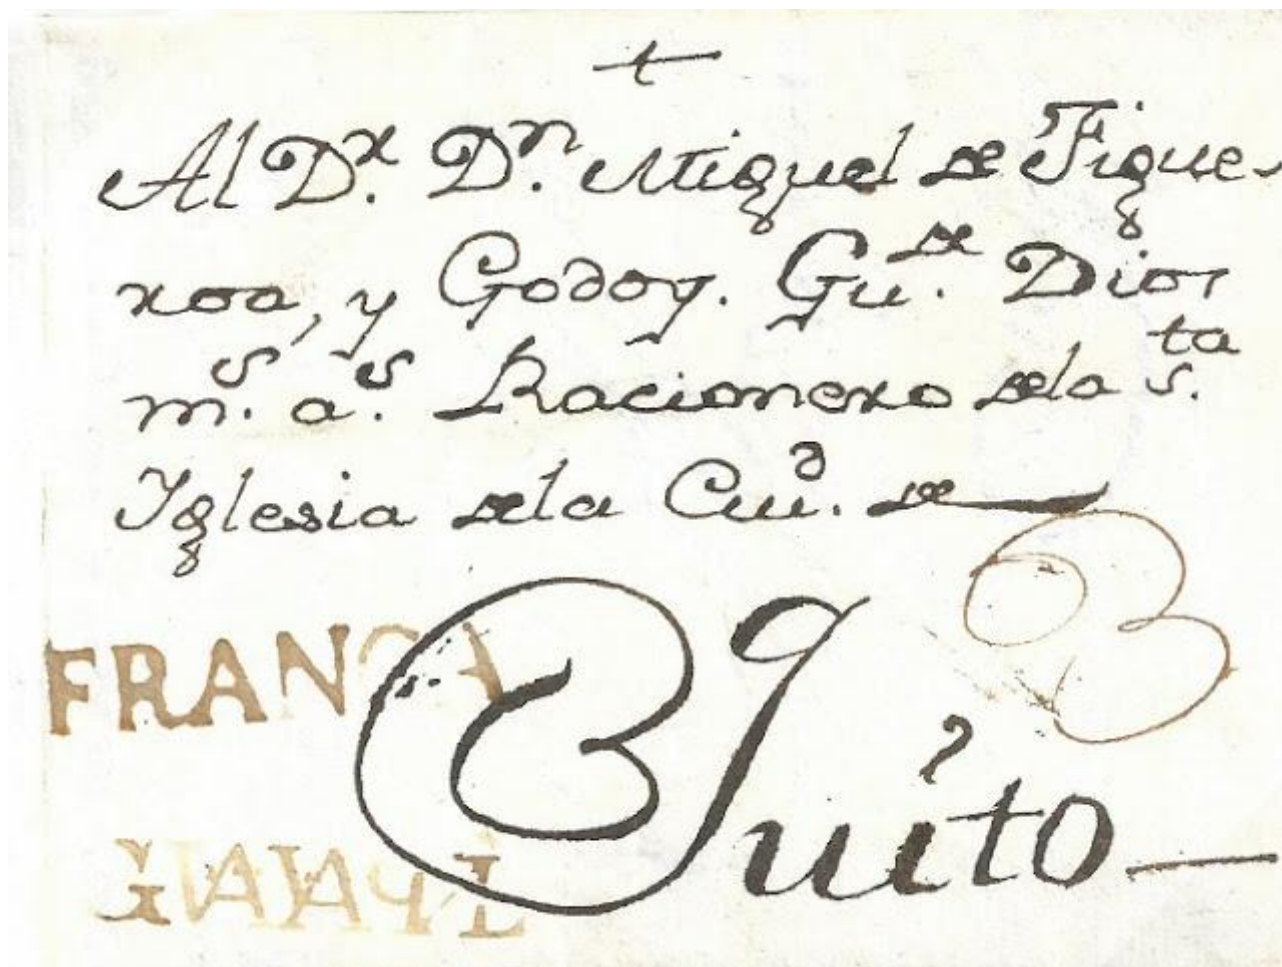 +
Al D.r D.n Miguel de Figue-
roa, y Godoy. Gu.de Dios
m.s a.s Racionero dela S.ta
Iglesia dela Ciu.d de
3
FRANCA
Quito
GUAYAQL